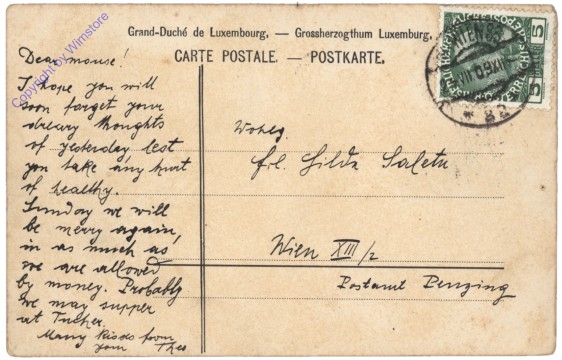 Grand-Duché de Luxembourg. — Grossherzogthum Luxemburg.
CARTE POSTALE. — POSTKARTE.
Copyright by Wimstore
Dear mouse!
I hope you will
soon forget your
dreary thoughts
of yesterday lest
you take any hurt
of healthy.
Sunday we will
be merry again,
in as much as
we are allowed
by money. Probably
we may supper
at Tucher.
Many Kisses from
your Theo
Wohlg.
Frl. Hilda Saletu
Wien XIII/2
Postamt Penzing
WIEN
5
5